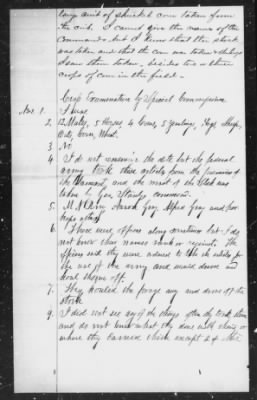 large amt of shucked corn taken from
the crib. I cannot give the name of the
Commands but I know that the stock
was taken and that the corn was taken &
I saw them taken, besides two or three
crops of corn in the field.
Cross Examination by Special Commissioner
Ans. 1. I was
2. 12 Mules, 5 Horses, 4 Cows, 5 yearlings, Hogs, Sheep,
Oats, Corn, Wheat.
3. No
4. I do not remember the date but the federal
army took these articles from the premises of
the Claimant, and the most of the stock was
taken by Gen Stanley command.
5. Aaron Gray, Alfred Gray and per
haps others
6. There were officers along sometimes but I do
not know their names rank or regiments. The
officers said they were ordered to take the articles for
the use of the army and said drove and
load them off.
7. They hauled the forage away and drove off the
stock
9. I did not see any of the things after they took them
and do not know what they done with
where they carried them except